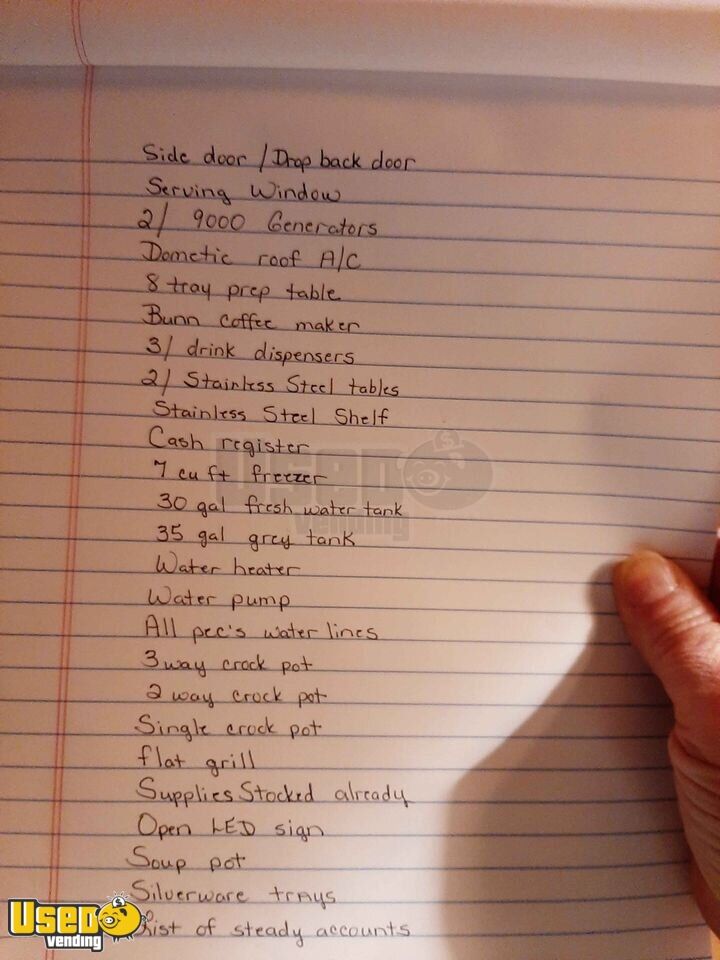 Side door / Drop back door
Serving Window
2/ 9000 Generators
Dometic roof A/C
8 tray prep table
Bunn coffee maker
3/ drink dispensers
2/ Stainless Steel tables
Stainless Steel Shelf
Cash register
7 cu ft freezer
30 gal fresh water tank
35 gal grey tank
Water heater
Water pump
All pec's water lines
3 way crock pot
2 way crock pot
Single crock pot
flat grill
Supplies Stocked already
Open LED sign
Soup pot
Silverware trays
List of steady accounts
USED vending
USED vending